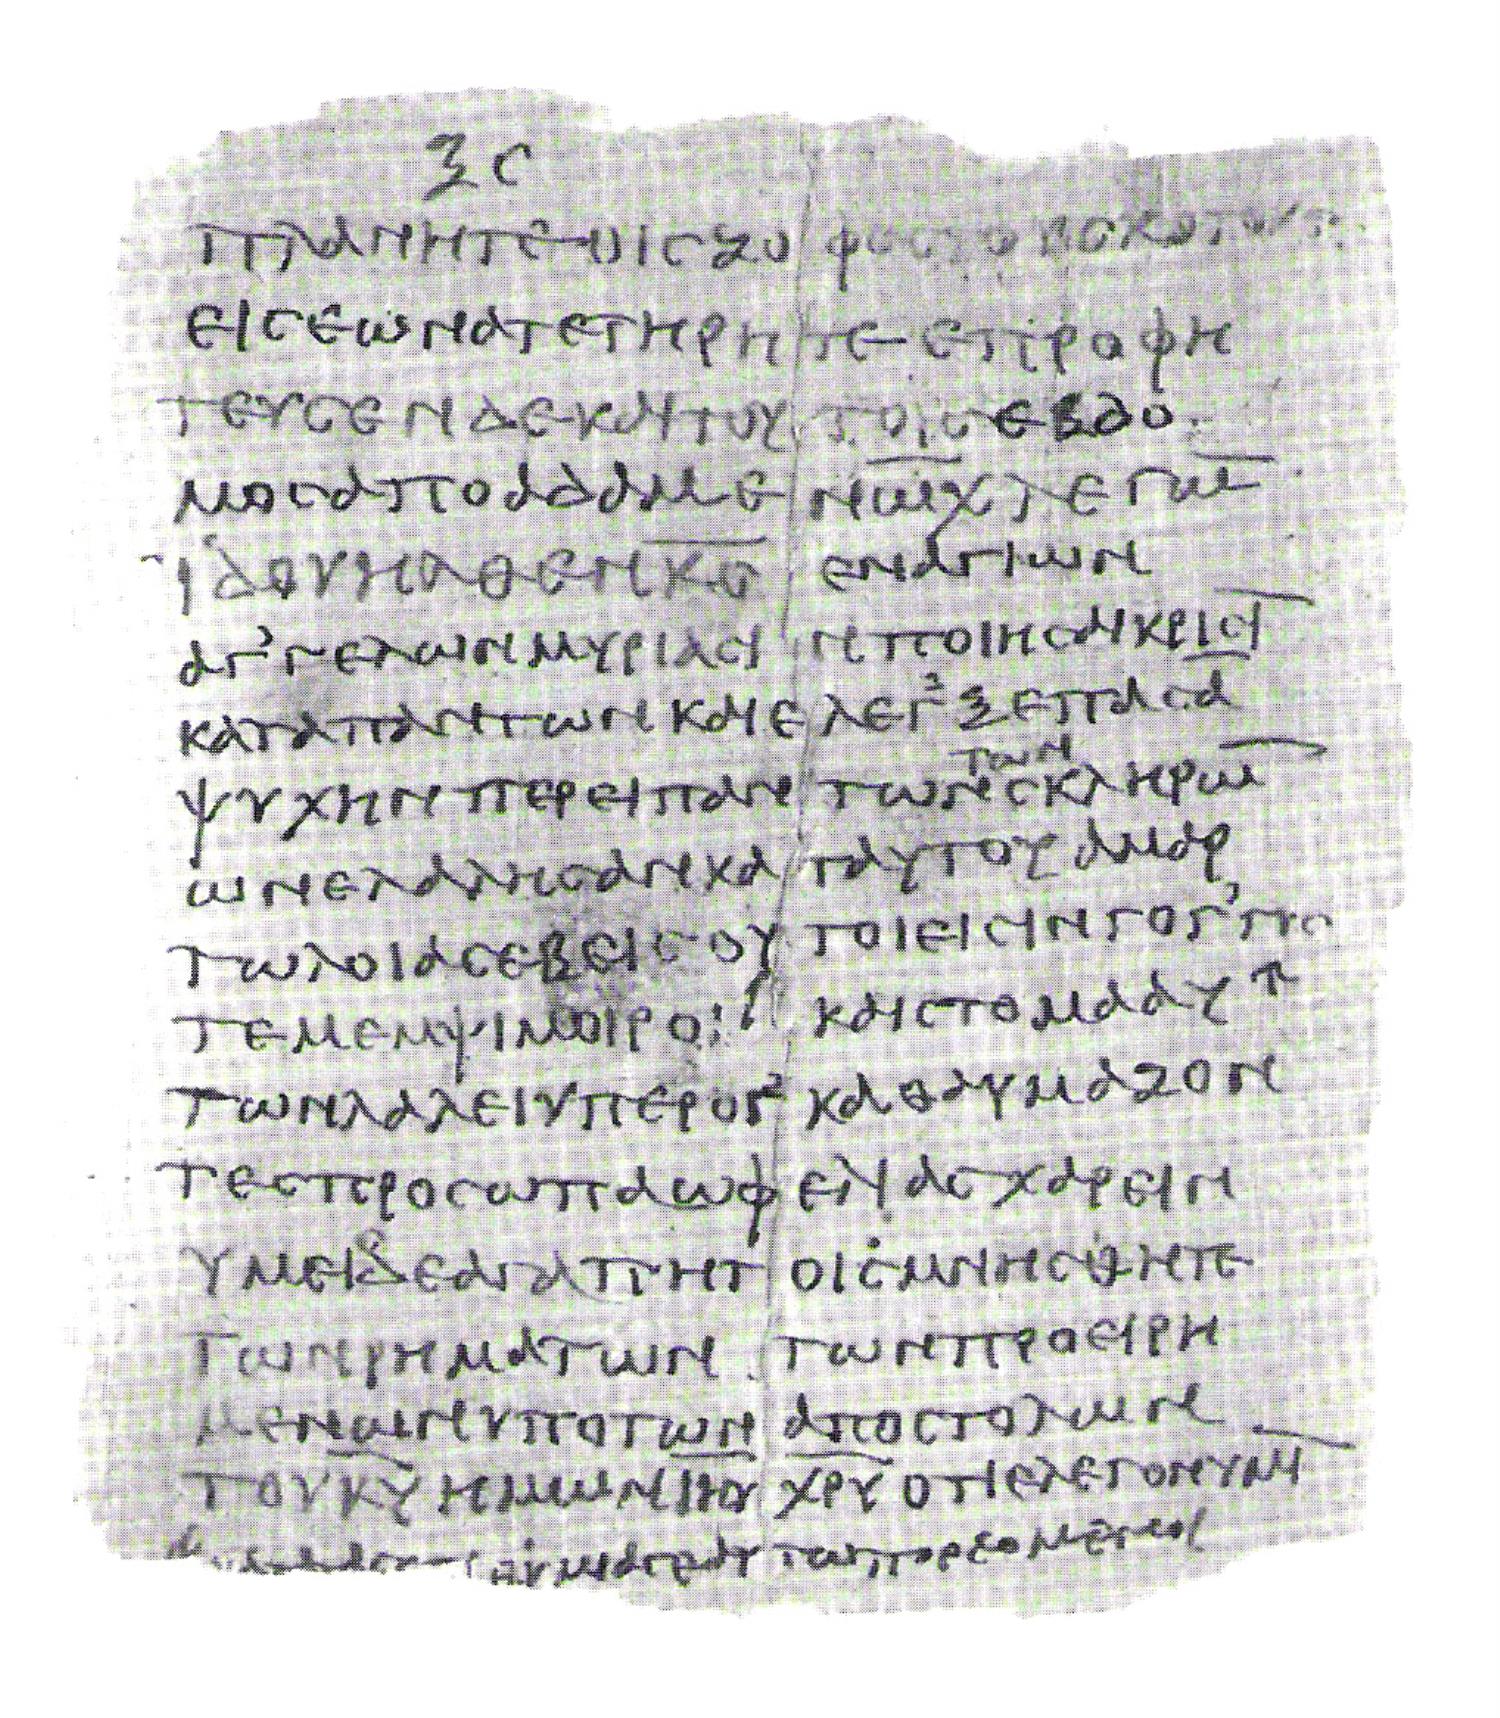 ξϛ
πλανητεοιςζοφοςτουςκοτους
ειςεωνατετηρητεεπροφη
τευσενδεκαιτουτοιςεβδο
μοςαποαδαμενωχλεγω̅
ϊδουηλθενκ̅ς̅εναγιων
αγ᾽γελωνμυριασινποιησαικρισι̅
καταπαντωνκαιελεγ᾽ξεπασα
ψυχηνπερειπαντωνˋτωνˊσκληρω̅
ωνελαλησανκαταυτουαμαρ
τωλοιασεβειςουτοιεισινγογ᾽γυς
τεμεμψιμοιροι καιστομααυτ
τωνλαλειυπερογ᾽καθαυμαζον
τεςπροσωπαωφελιαςχαρειν
υμειςδεαγαπητοιςμνησθητε
τωνρηματωντωνπροειρη
μενωνυποτωναποστολων
τουκ̅υ̅ημωνι̅η̅υ̅χ̅ρ̅υ̅οτιελεγονυμι̅